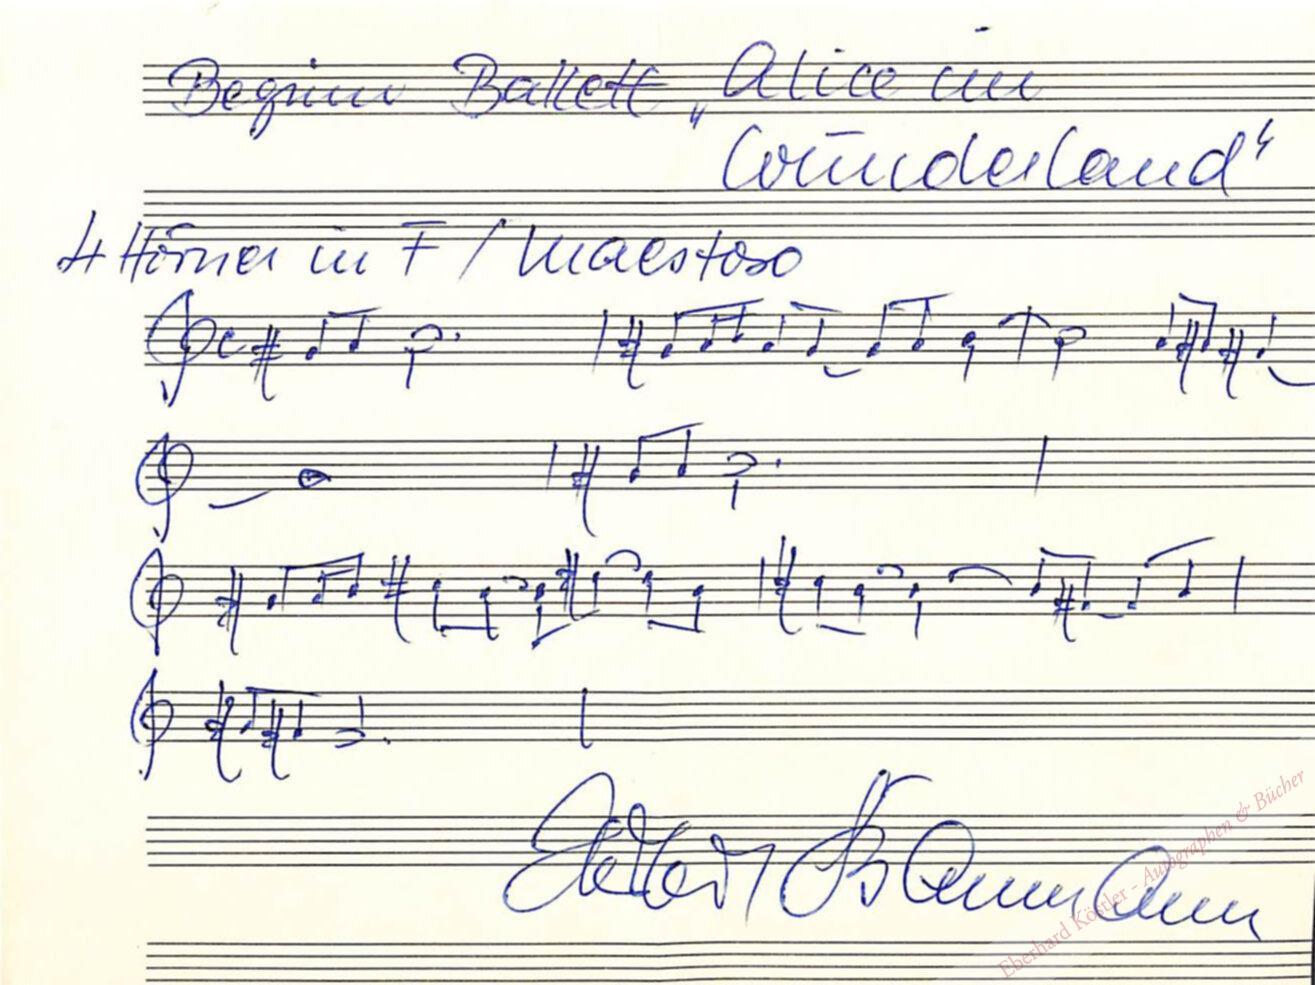 Beginn Ballett „Alice im
Wunderland"
4 Hörner in F / Maestoso
Eberhard Köstler - Autographen & Bücher